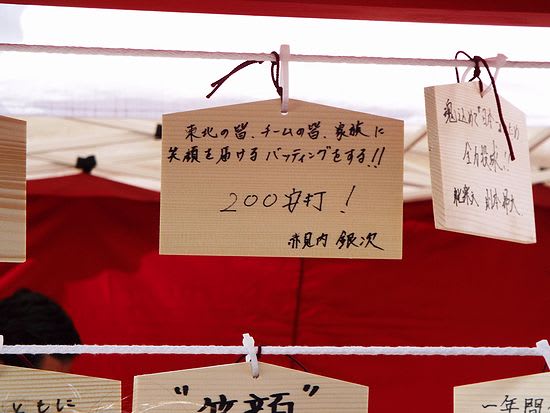 東北の皆、チームの皆、家族に
笑顔を届けるバッティングをする!!
200安打!
赤見内 銀次
魂込めて日本一のため
全力投球!!
"笑顔"
ともに
一年間